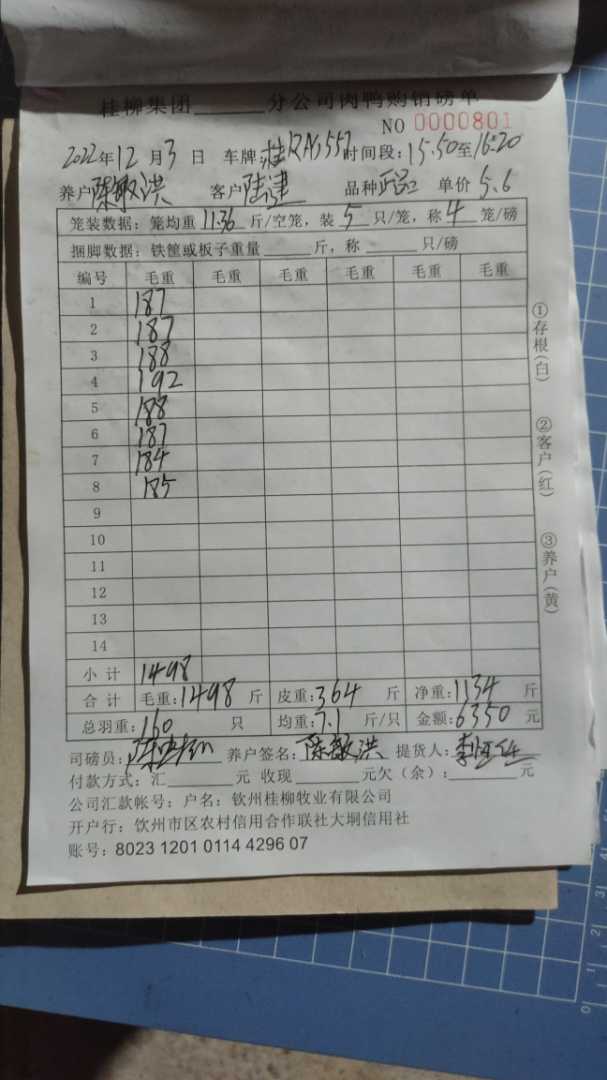 桂柳集团______分公司肉鸭购销磅单
NO 0000801
2022年12月3日 车牌:桂RAJ557时间段:15:50至16:20
养户陈敏洪 客户陆建 品种正品 单价5.6
笼装数据:笼均重11.36斤/空笼,装5只/笼,称4笼/磅
捆脚数据:铁筐或板子重量______斤,称______只/磅
编号 毛重 毛重 毛重 毛重 毛重 毛重
1 187
2 187
3 188
4 192
5 188
6 187
7 184
8 185
9
10
11
12
13
14
小计 1498
合计 毛重:1498斤 皮重:364斤 净重:1134斤
总羽重:160只 均重:7.1斤/只 金额:6350元
司磅员: 养户签名:陈敏洪 提货人:
付款方式:汇______元 收现______元欠(余):______元
公司汇款帐号:户名:钦州桂柳牧业有限公司
开户行:钦州市区农村信用合作联社大垌信用社
账号:8023 1201 0114 4296 07
①存根(白)
②客户(红)
③养户(黄)